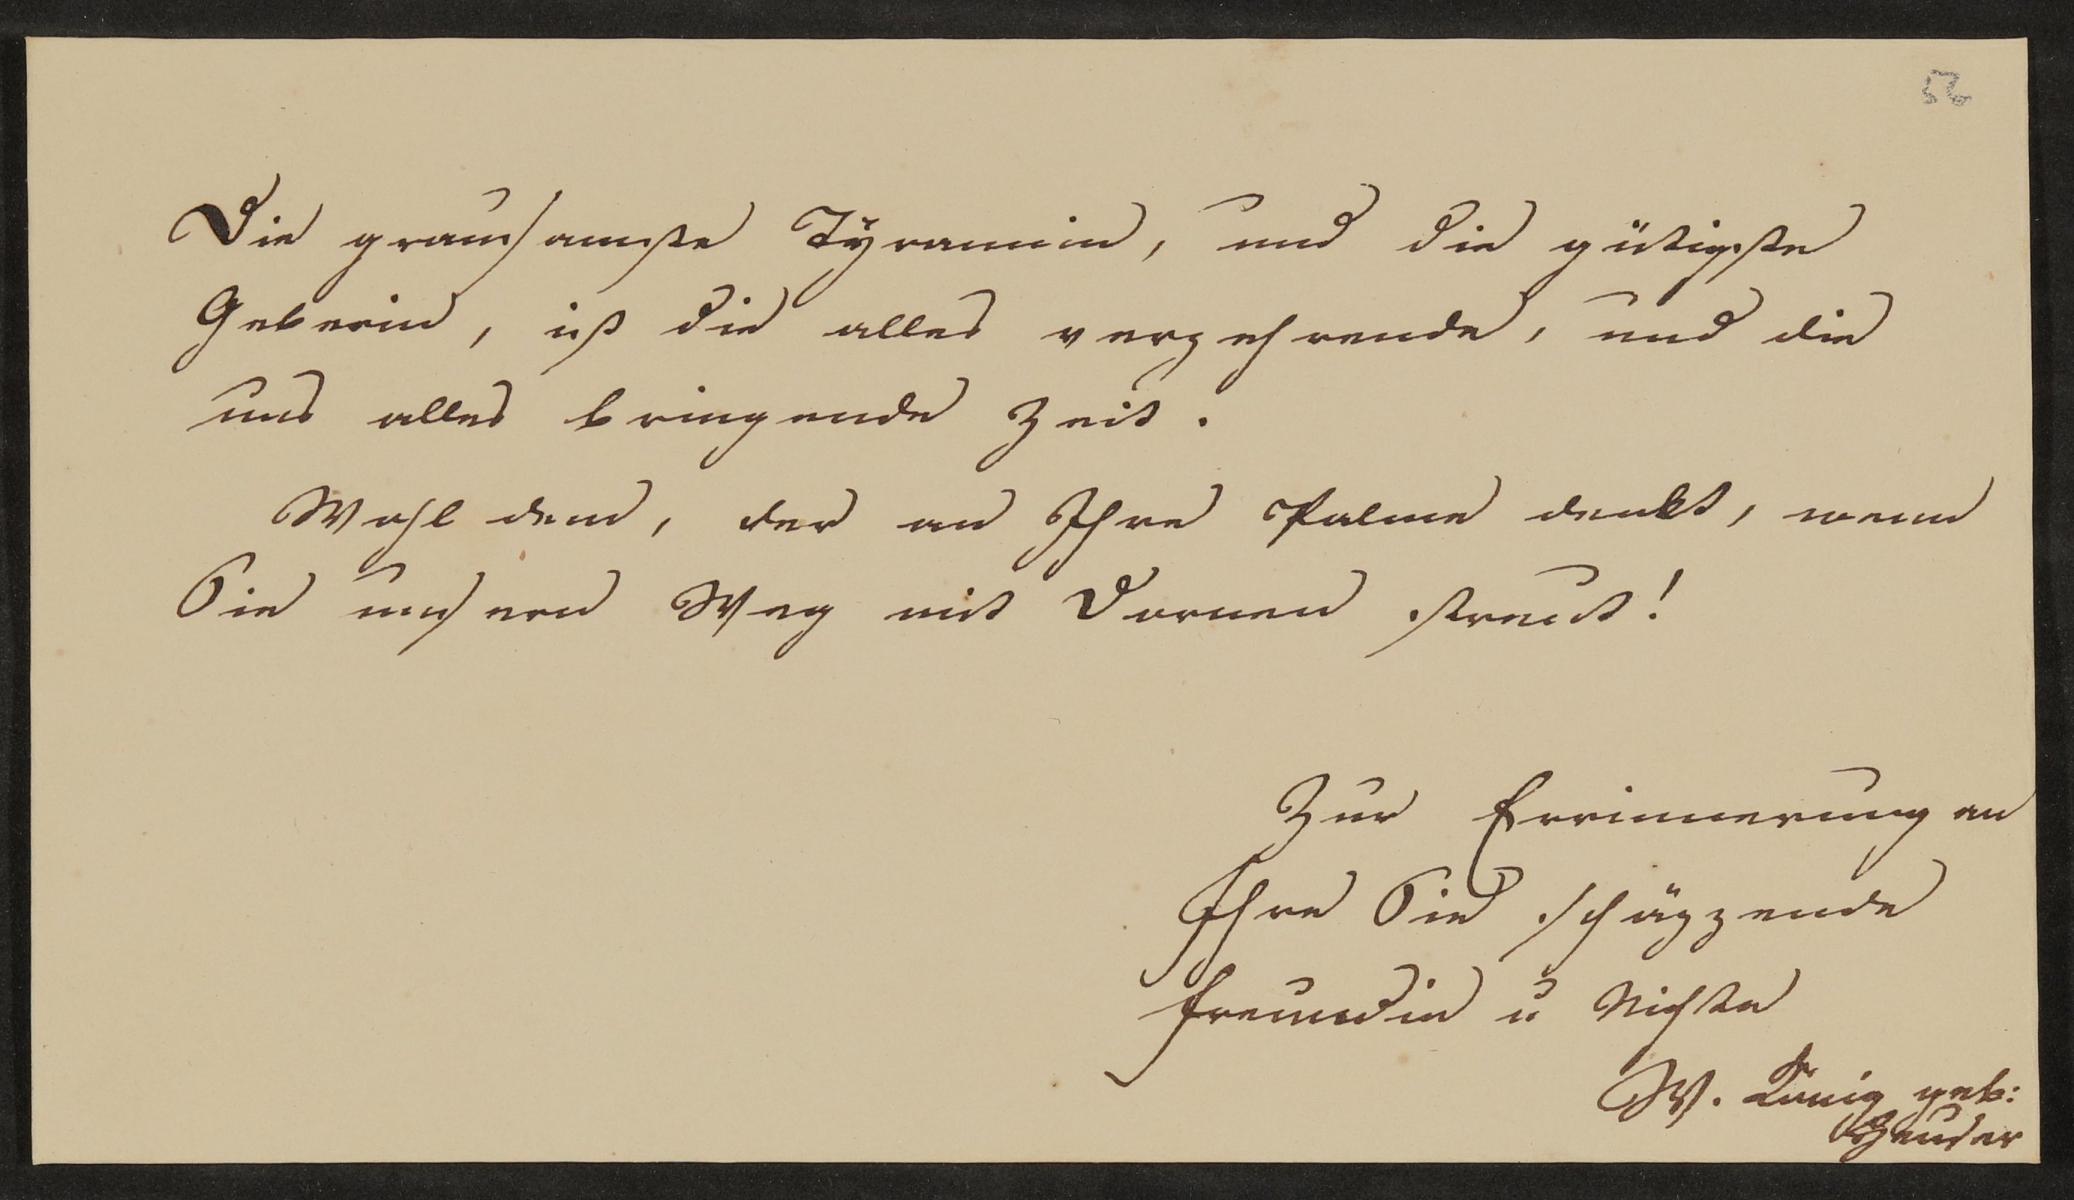 56
Die grausamste Tÿrannin, und die gütigste
Geberin, ist die alles verzehrende, und die
uns alles bringende Zeit.
Wohl dem, der an Ihre Palme denkt, wenn
Sie unsern Weg mit Dornen streut!
Zur Errinnerung an
Ihre Sie schäzzende
Freundin u Nichte
W. König geb: